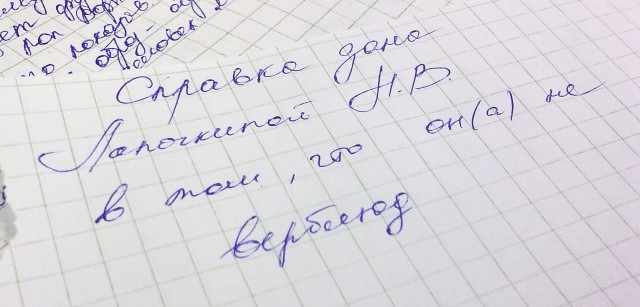 Справка дана
Лапочкиной Н.В.
в том, что он(а) не
верблюд